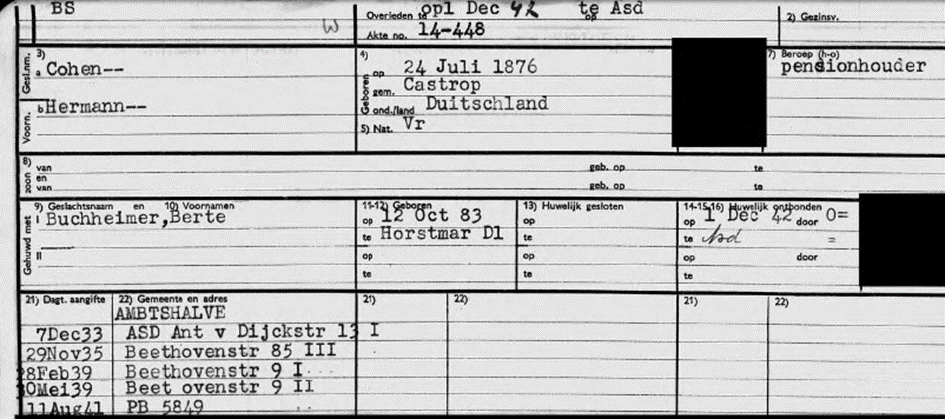 BS
W
Overleden op 1 Dec 42 te Asd
Akte no. 14-448
2) Gezinsv.
Gesl.nm. 3) a Cohen--
Voorn. b Hermann--
4) Geboren op 24 Juli 1876
gem. Castrop
ond./land Duitschland
5) Nat. Vr
7) Beroep (h-o)
pensionhouder
8) zoon van geb. op te
en
van geb. op te
Gehuwd met 9) Geslachtsnaam en 10) Voornamen
I Buchheimer,Berte
II
11-12) Geboren
op 12 Oct 83
te Horstmar Dl
op
te
13) Huwelijk gesloten
op
te
op
te
14-15-16) Huwelijk ontbonden
op 1 Dec 42 door O=
te Asd =
op door
te
21) Dagt. aangifte 22) Gemeente en adres 21) 22) 21) 22)
AMBTSHALVE
7Dec33 ASD Ant v Dijckstr 13 I
29Nov35 Beethovenstr 85 III
28Feb39 Beethovenstr 9 I
0Mei39 Beet ovenstr 9 II
11Aug41 PB 5849